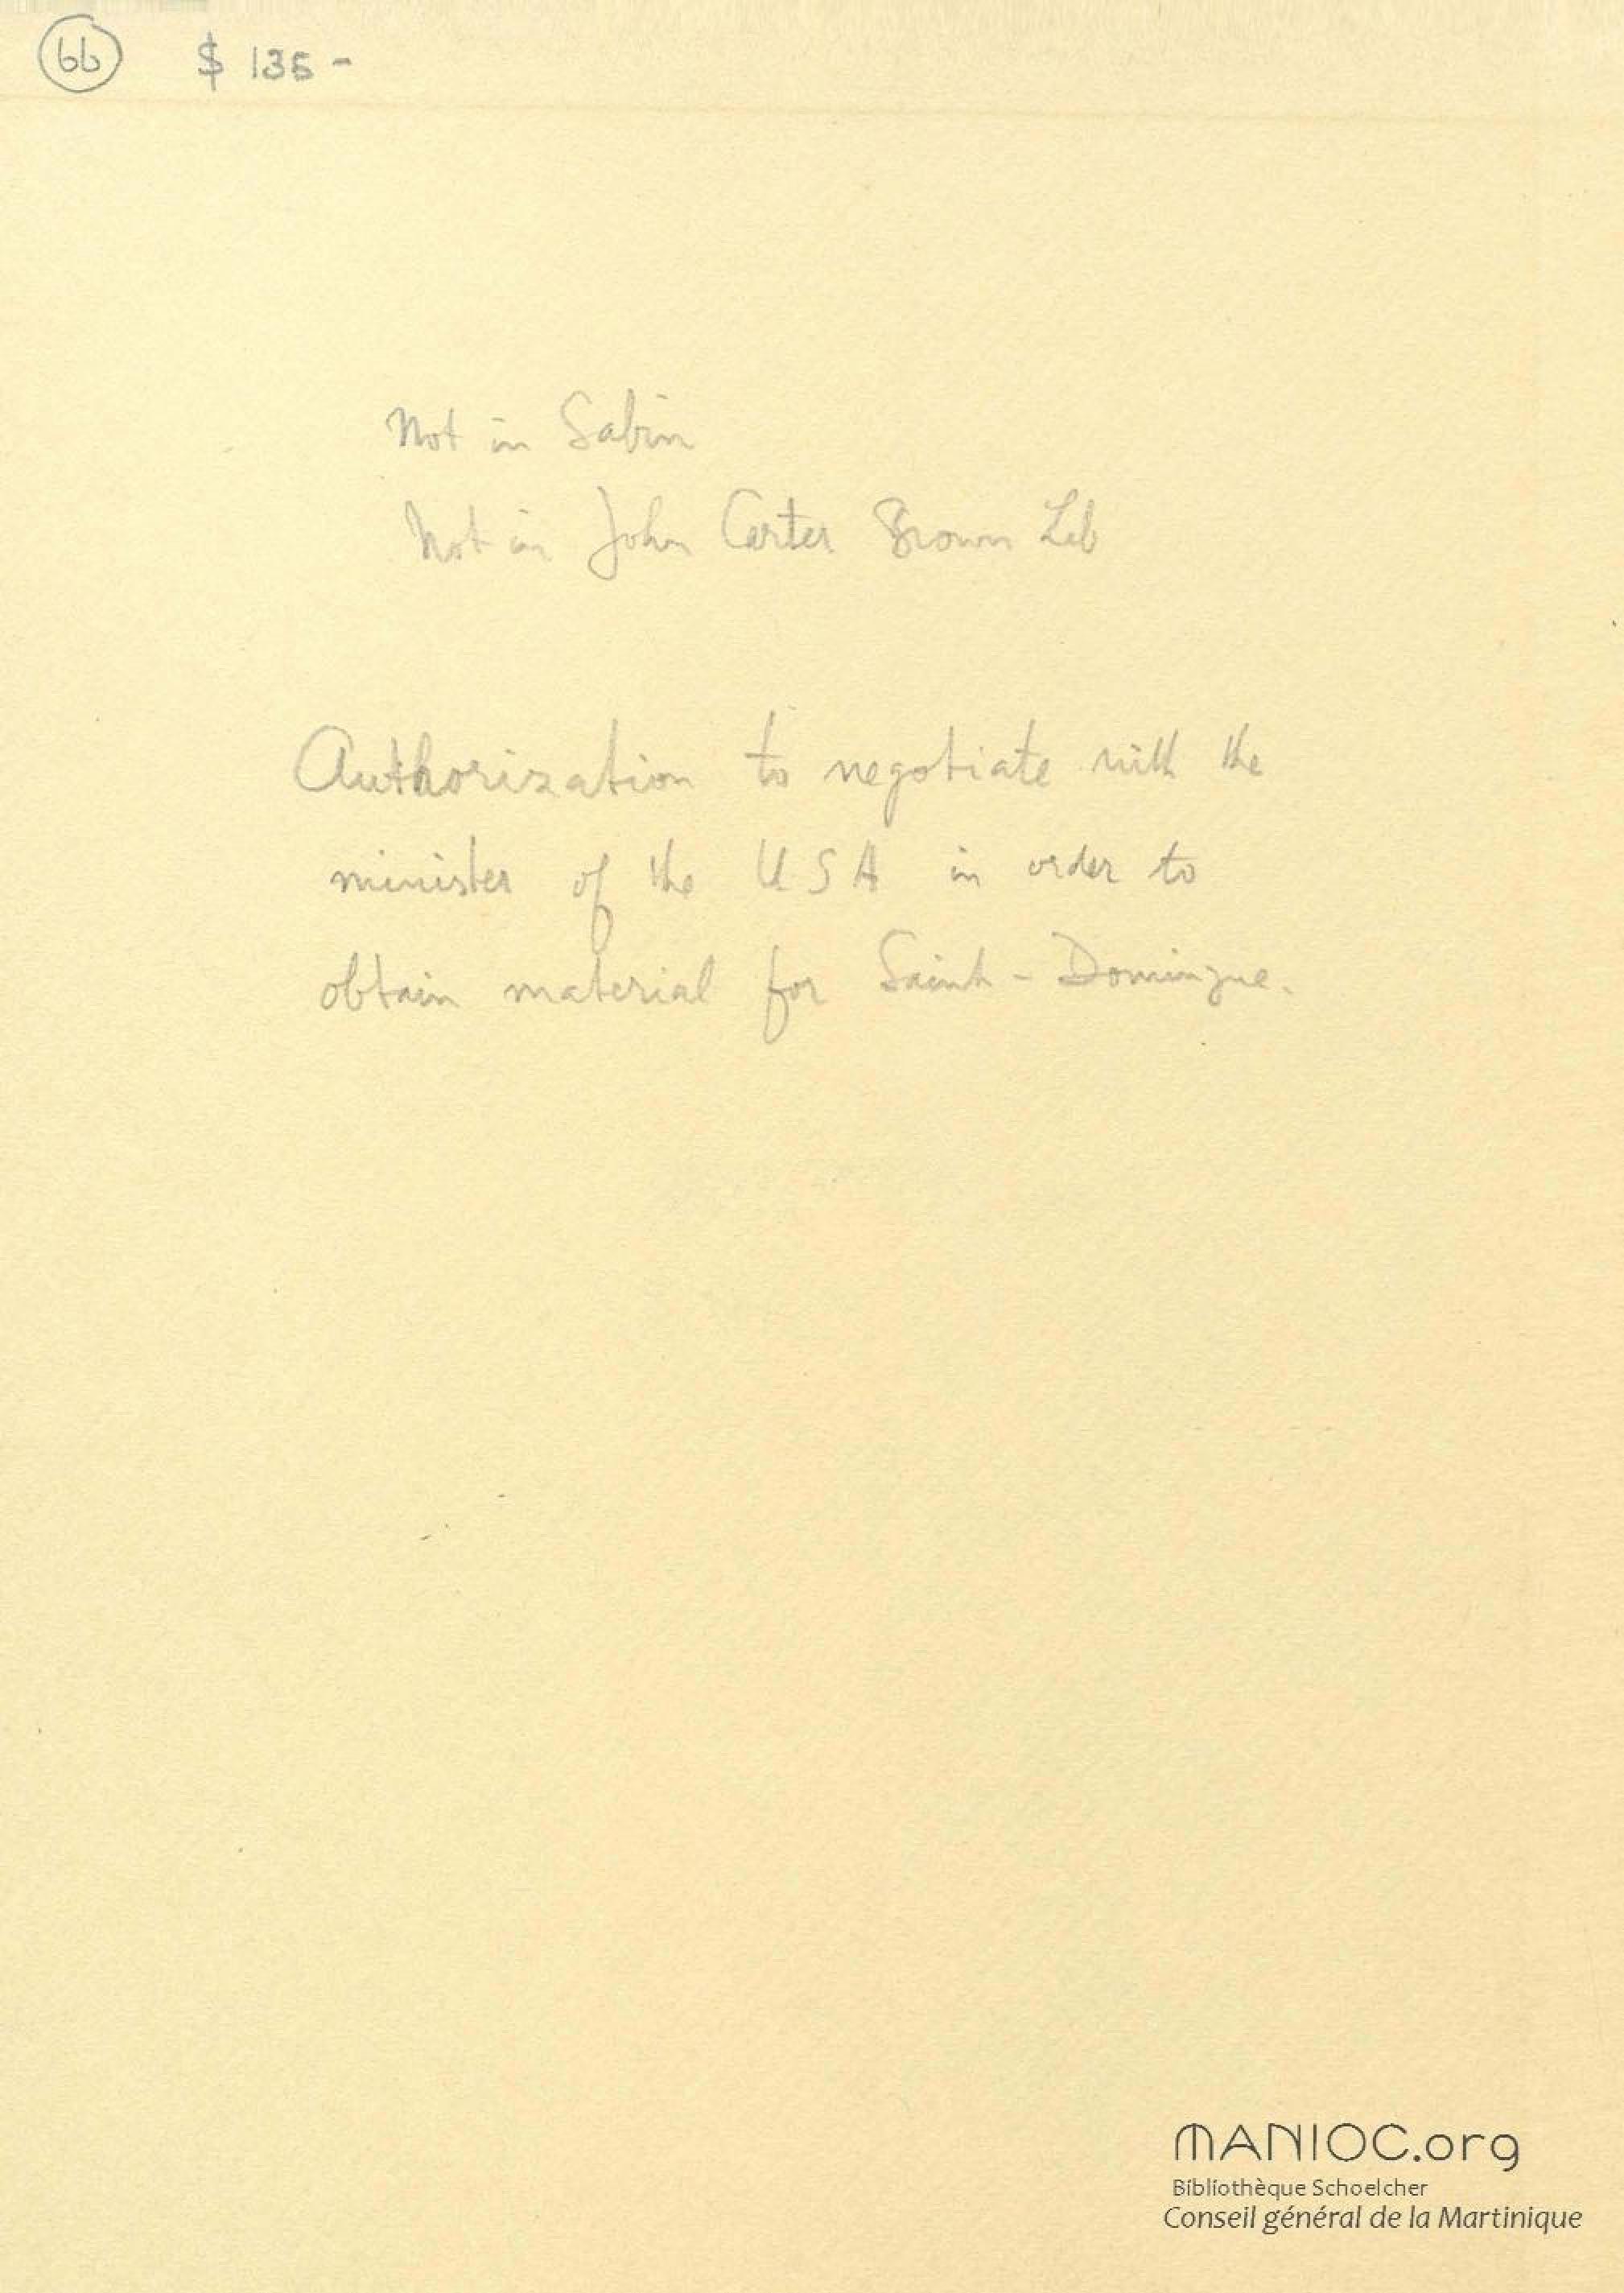 66 $ 135 -
Not in Sabin
Not in John Carter Brown Lib
Authorization to negotiate with the
minister of the USA in order to
obtain material for Saint-Domingue.
MANIOC.org
Bibliothèque Schoelcher
Conseil général de la Martinique